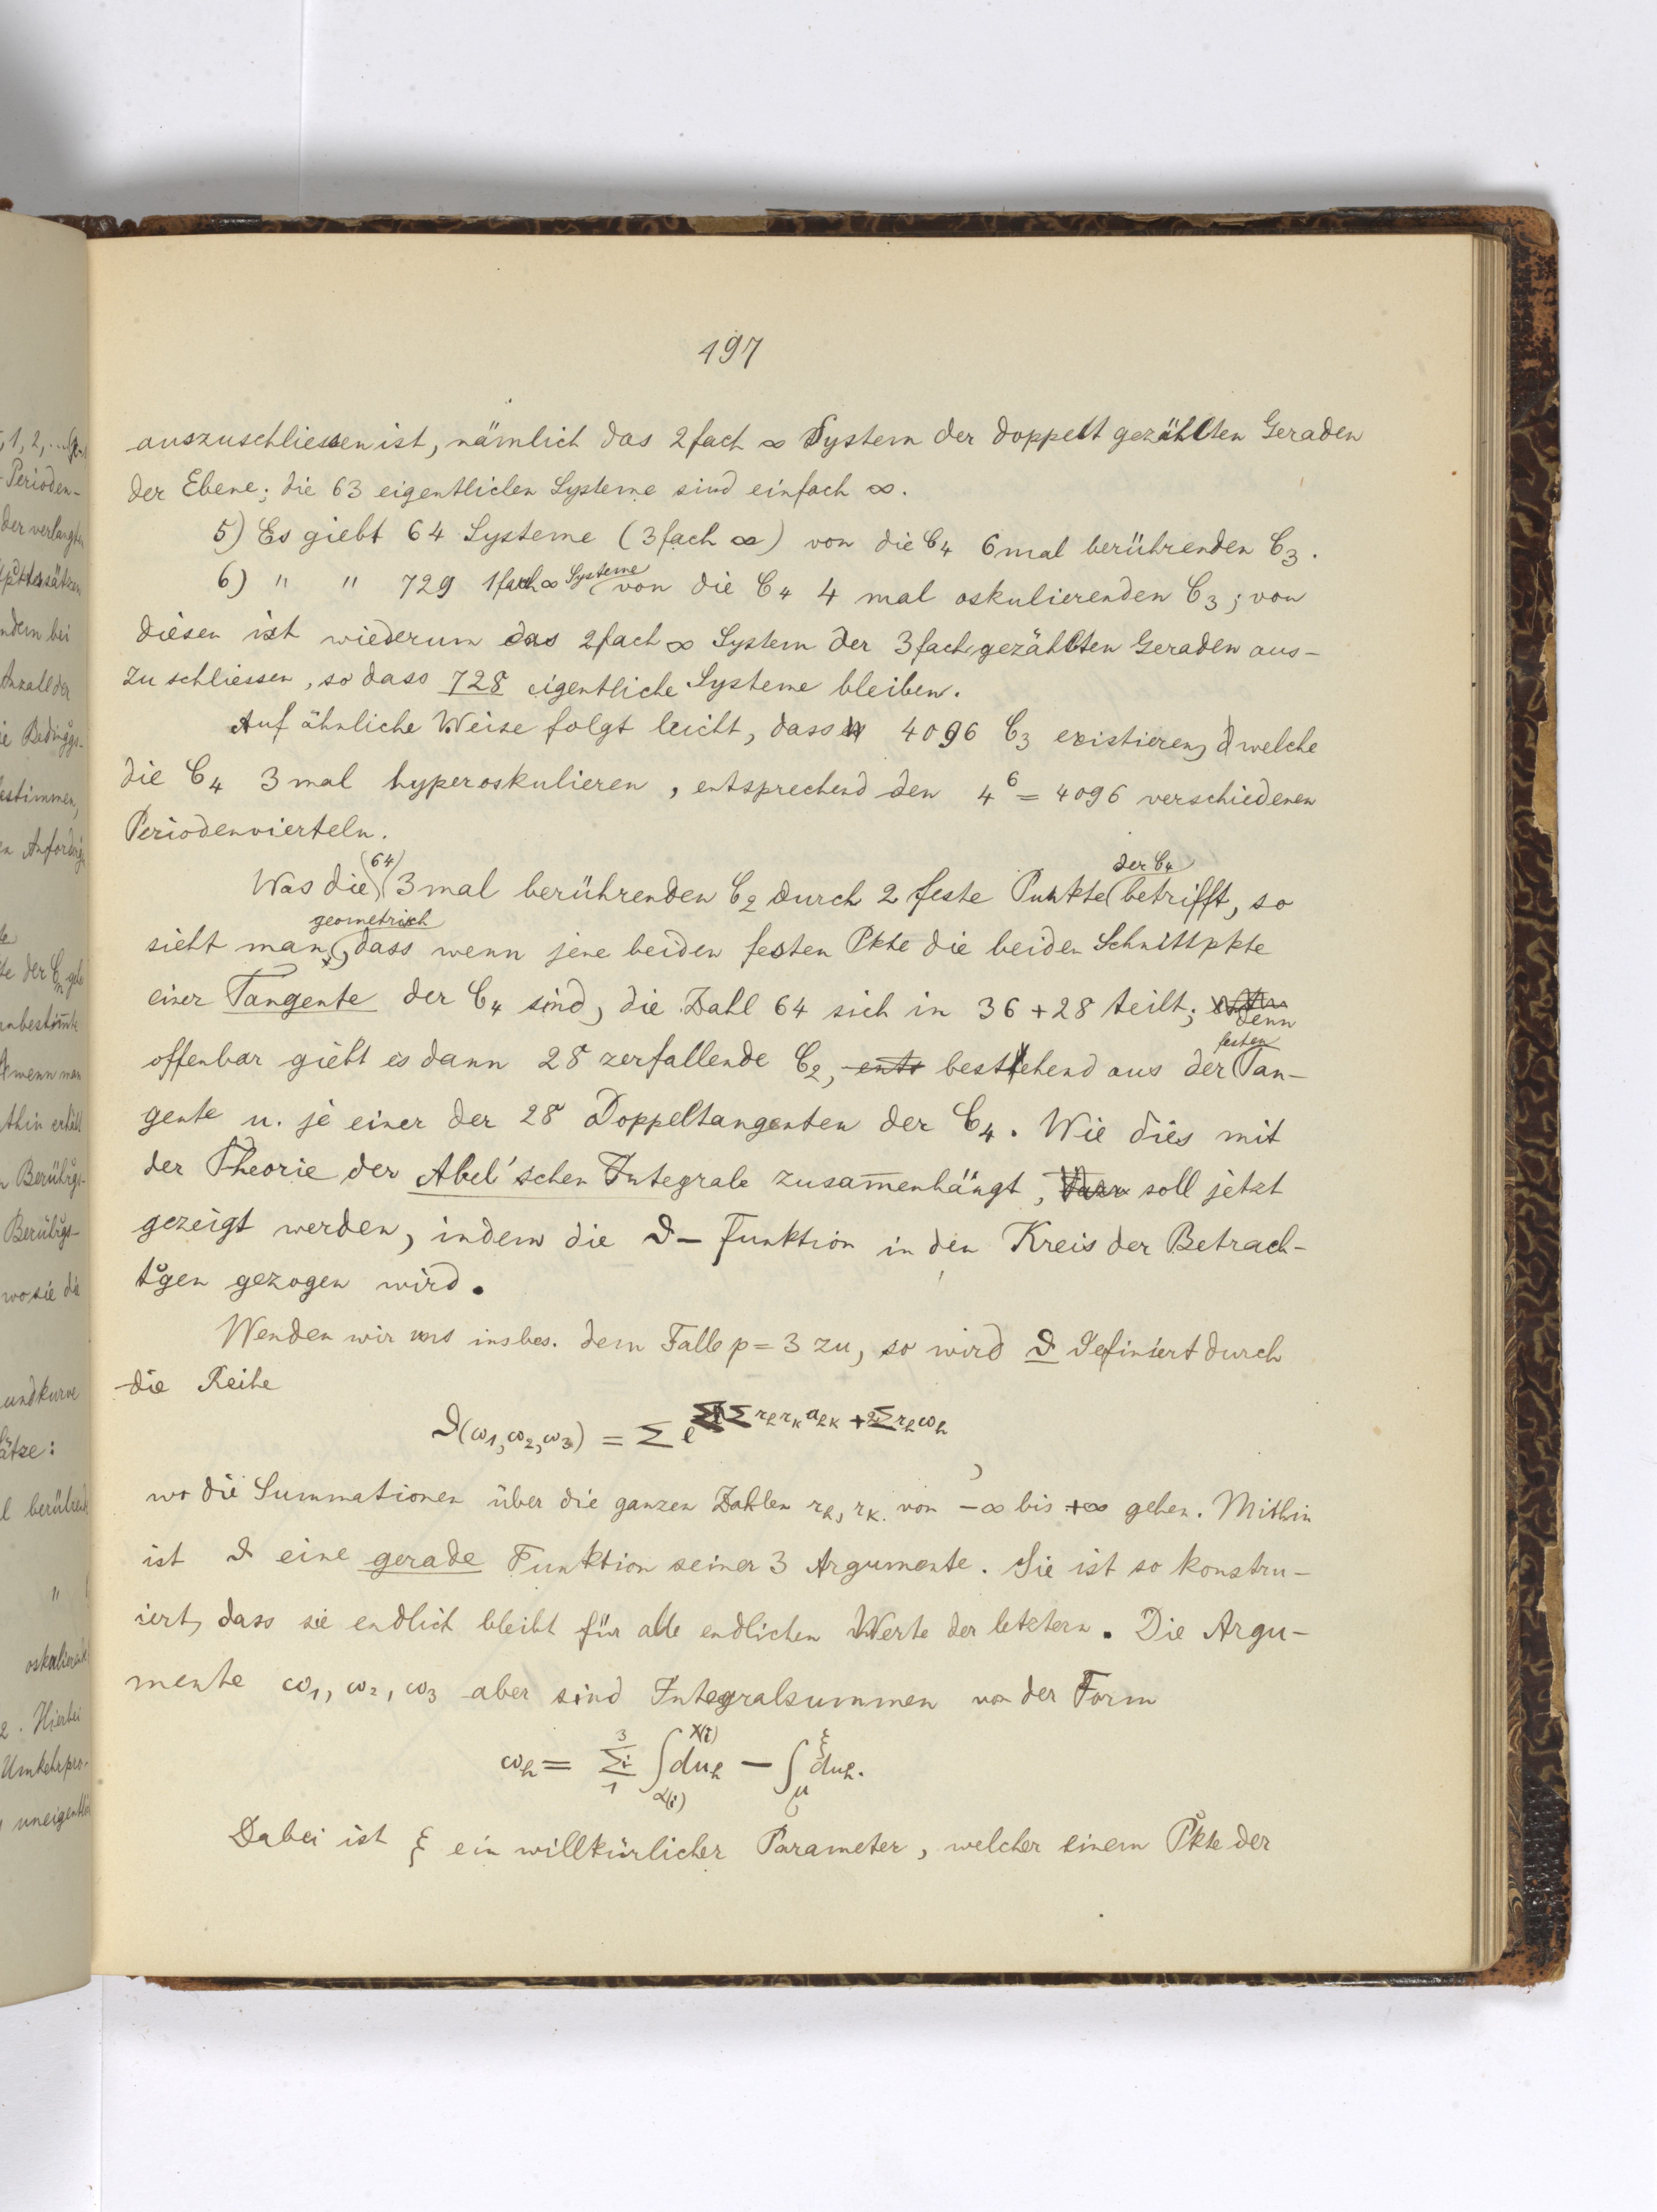 197
auszuschliessen ist, nämlich das 2fach ∞ System der doppelt gezählten Geraden
der Ebene; die 63 eigentlichen Systeme sind einfach ∞.
5) Es giebt 64 Systeme (3fach ∞) von die C₄ 6mal berührenden C₃.
6) " " 729 1fach ∞ Systeme von die C₄ 4 mal oskulierenden C₃; von
diesen ist wiederum das 2fach ∞ System der 3fach gezählten Geraden aus-
zuschliessen, so dass 728 eigentliche Systeme bleiben.
Auf ähnliche Weise folgt leicht, dass 4096 C₃ existieren, welche
die C₄ 3mal hyperoskulieren, entsprechend den 4⁶ = 4096 verschiedenen
Periodenvierteln.
Was die (64) 3mal berührenden C₂ durch 2 feste Punkte der C₄ betrifft, so
sieht man geometrisch, dass wenn jene beiden festen Pkte die beiden Schnittpkte
einer Tangente der C₄ sind, die Zahl 64 sich in 36 + 28 teilt; denn
offenbar giebt es dann 28 zerfallende C₂, bestehend aus der festen Tan-
gente u. je einer der 28 Doppeltangenten der C₄. Wie dies mit
der Theorie der Abel'schen Integrale zusam̅enhängt, soll jetzt
gezeigt werden, indem die ϑ-Funktion in den Kreis der Betrach-
tgen gezogen wird.
Wenden wir uns insbes. dem Falle p = 3 zu, so wird ϑ definiert durch
die Reihe
ϑ(ω₁, ω₂, ω₃) = Σ e^{ΣΣ r_h r_k a_hk + 2Σ r_h ω_h},
wo die Summationen über die ganzen Zahlen r_h, r_k von -∞ bis +∞ gehen. Mithin
ist ϑ eine gerade Funktion seiner 3 Argumente. Sie ist so konstru-
iert, dass sie endlich bleibt für alle endlichen Werte der letztern. Die Argu-
mente ω₁, ω₂, ω₃ aber sind Integralsummen von der Form
ω_h = Σ_1^3 i ∫_{α(i)}^{x(i)} du_h - ∫_μ^ξ du_h.
Dabei ist ξ ein willkürlicher Parameter, welcher einem Pkte der